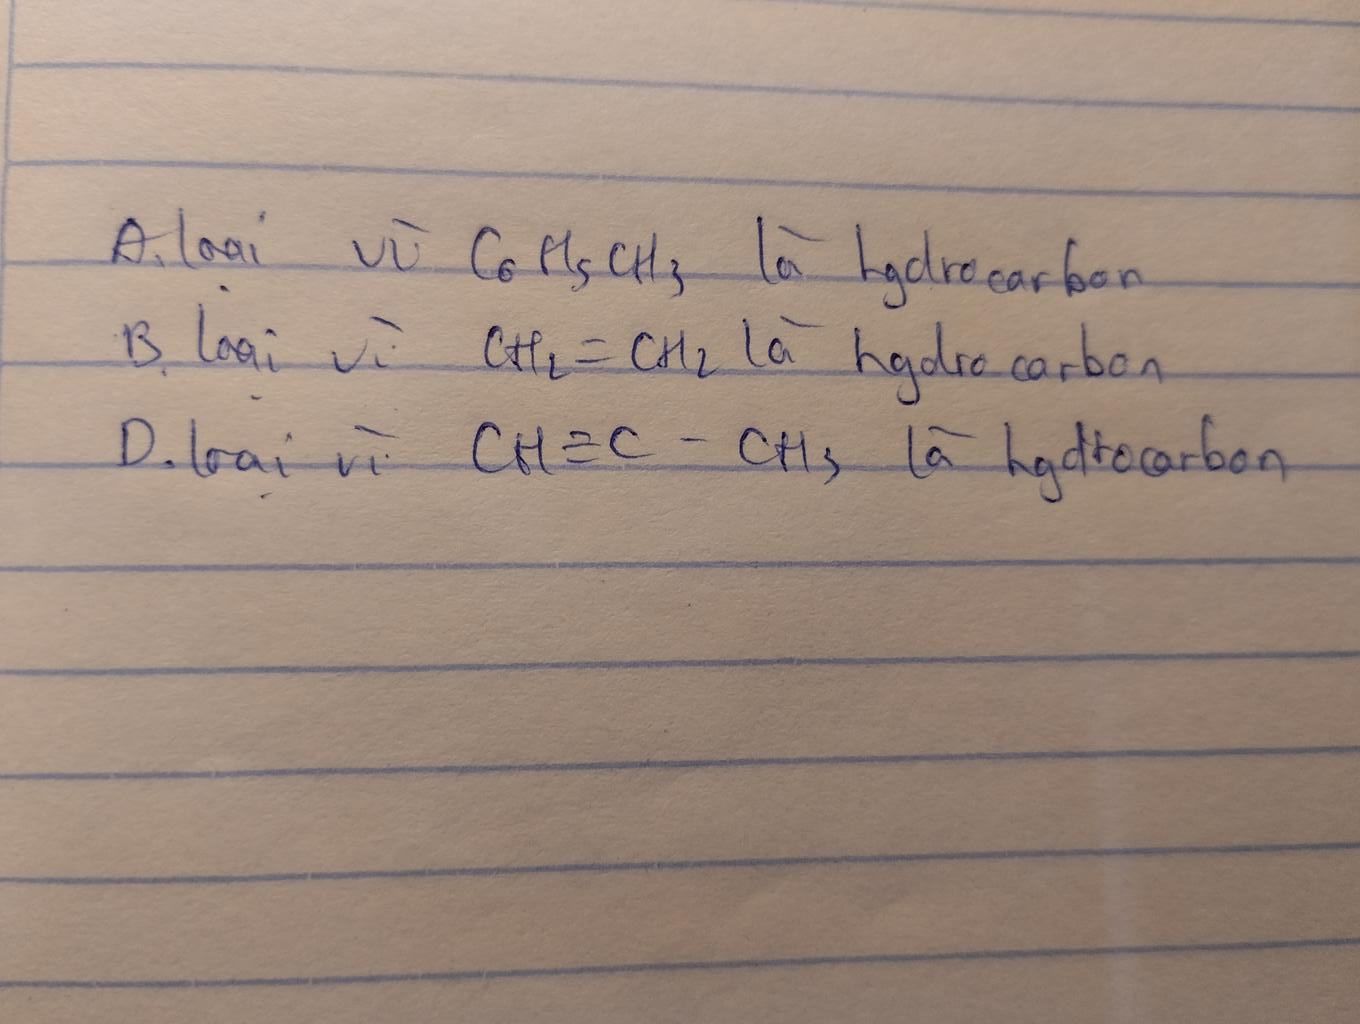 A. loại vì C₆H₅CH₃ là hydrocarbon
B. loại vì CH₂=CH₂ là hydrocarbon
D. loại vì CH≡C - CH₃ là hydrocarbon